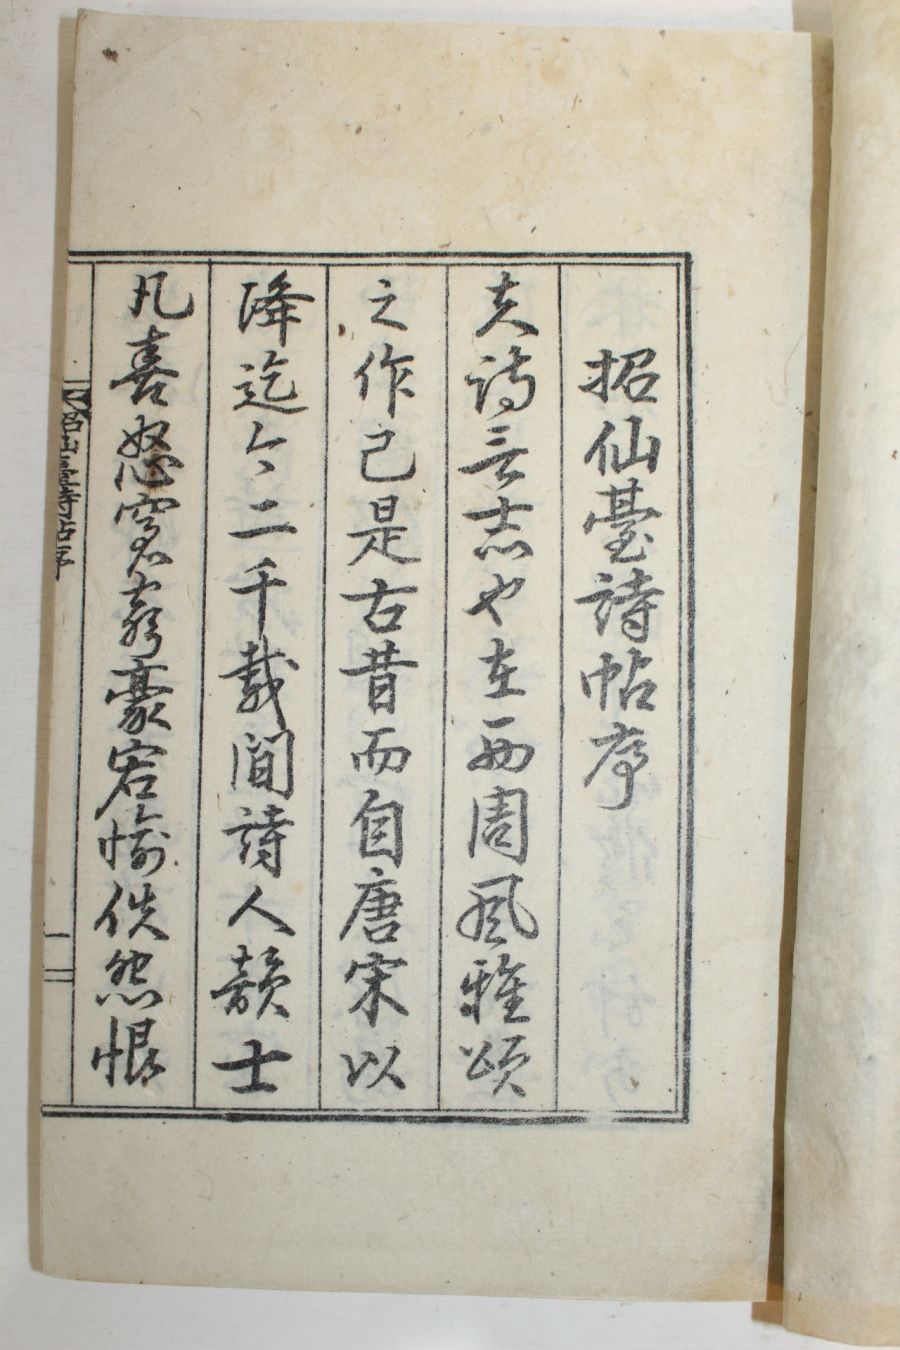 招仙臺詩帖序
夫詩言志也在西周風雅頌
之作已是古昔而自唐宋以
降迄今二千載間詩人韻士
凡喜怒窘窮豪宕愉佚怨恨
招仙臺詩帖序
一